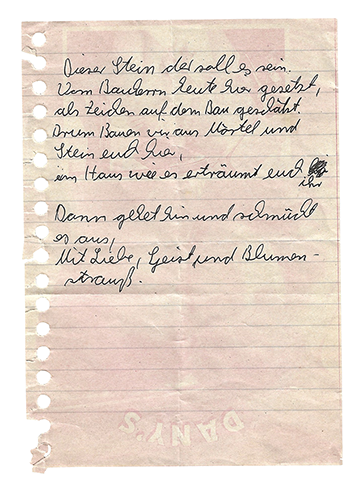 Dieser Stein der soll es sein.
Vom Bauherrn heute hier gesetzt,
als Zeichen auf dem Bau geschätzt.
Drum Bauen wir aus Mörtel und
Stein euch hier,
ein Haus wie es erträumt euch
ihr
Dann gehet hin und schmückt
es aus,
Mit Liebe, Geist und Blumen-
strauß.
DANY'S